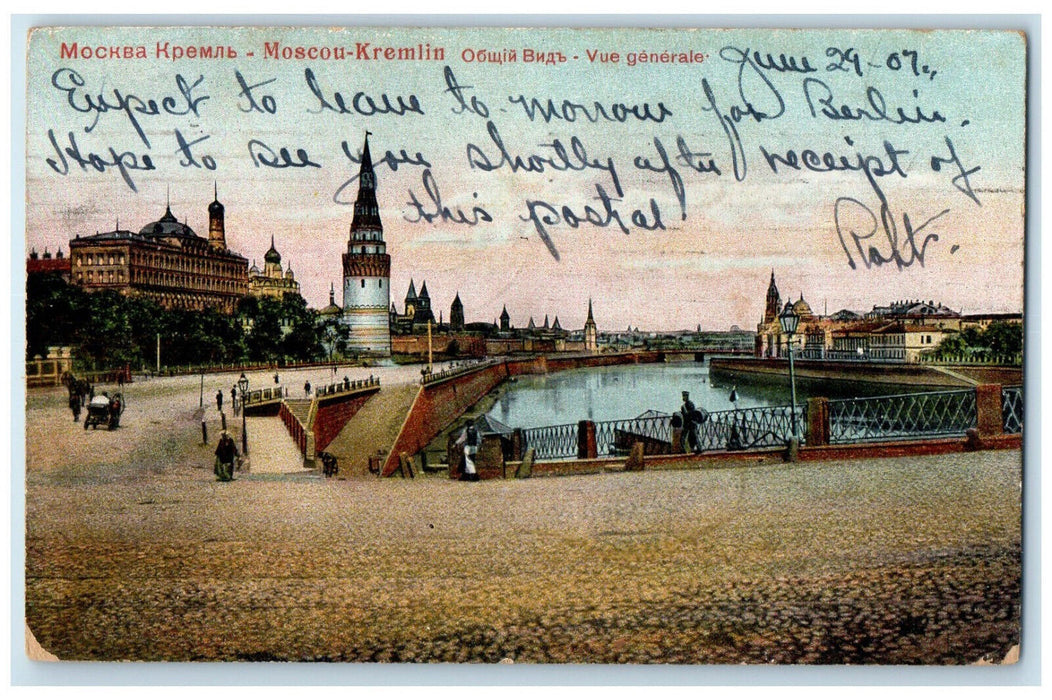 Москва Кремль - Moscou-Kremlin Общій Видъ - Vue générale. June 29-07.,
Expect to leave to morrow for Berlin.
Hope to see you shortly after receipt of
this postal
Robt.